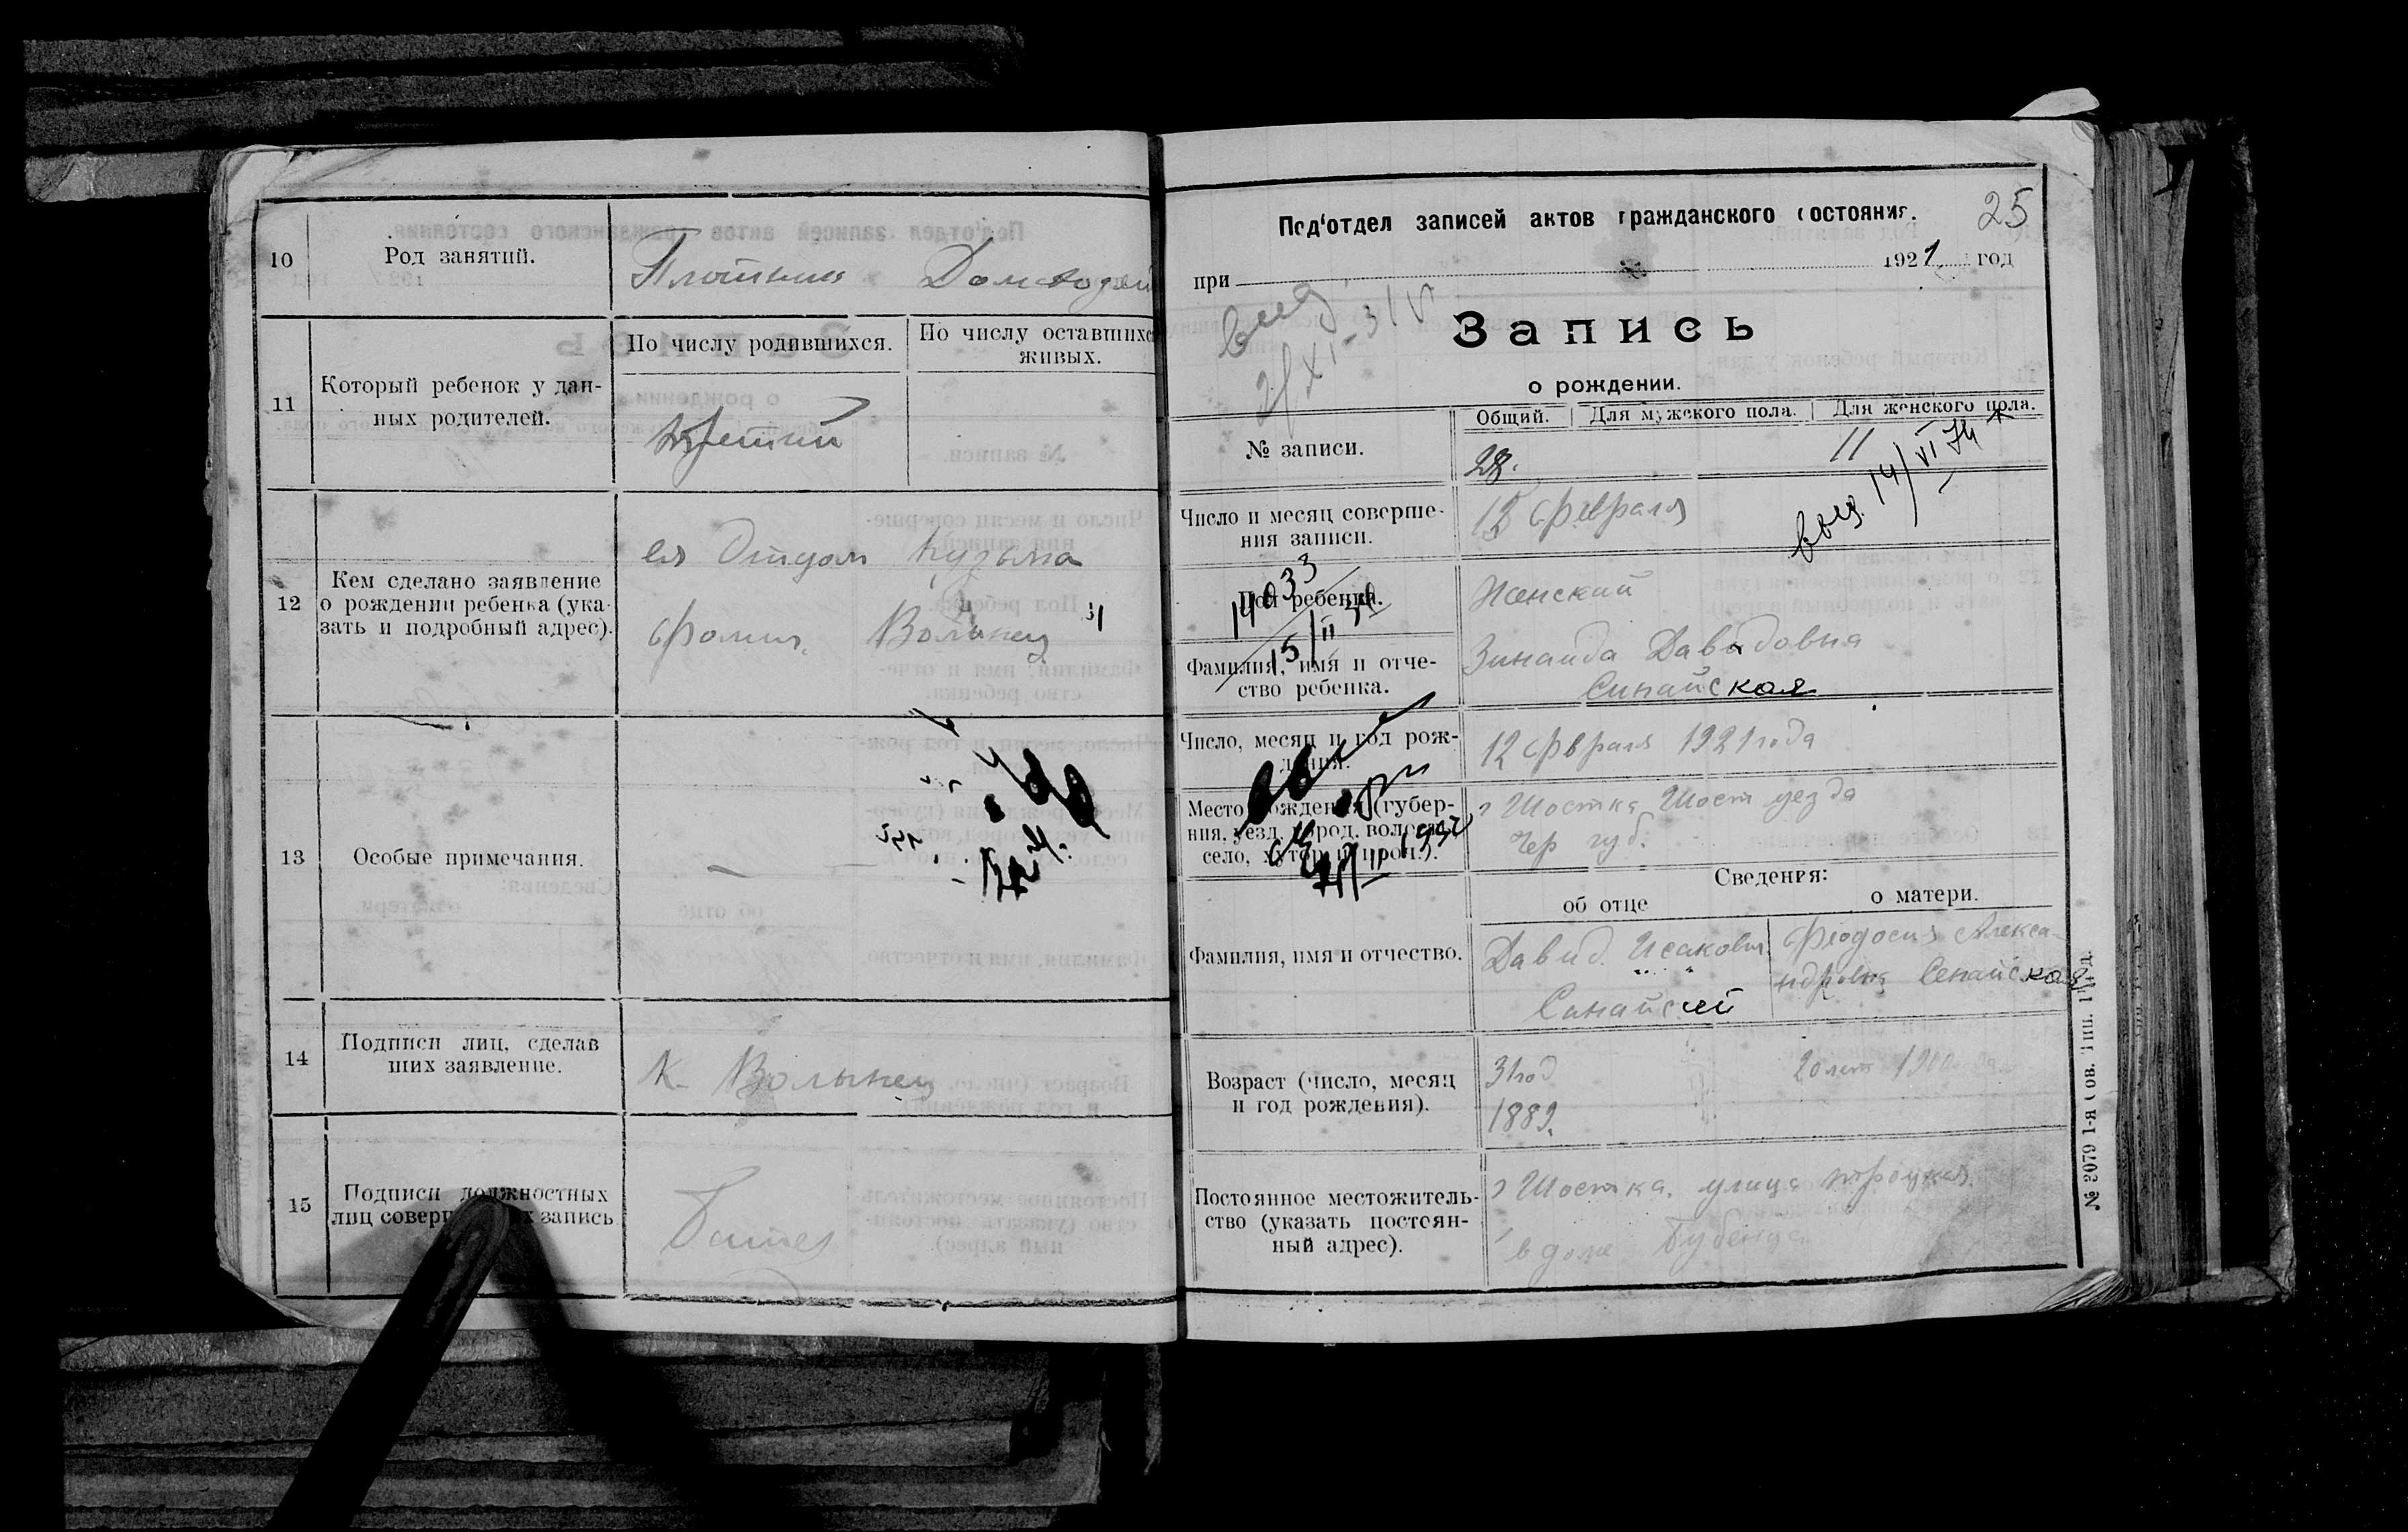 10
Род занятий.
Плотник
Домохозяй
11
Который ребенок у дан-
ных родителей.
По числу родившихся.
По числу оставшихс
живых.
третий
12
Кем сделано заявление
о рождении ребенка (ука-
зать и подробный адрес).
ея Отцом Кузьма
Фомич. Волынец
13
Особые примечания.
—
14
Подписи лиц, сделав
ших заявление.
К. Волынец
15
Подписи должностных
лиц соверш х запись
25
Под'отдел записей актов гражданского состояния.
при 1921 год
выд.
Запись
о рождении.
Общий. Для мужского пола. Для женского пола.
№ записи.
28.
11
выд. 14/VI 74
Число и месяц соверше-
ния записи.
12 февраля
Пол ребенка.
14033
15/II
Женский
Фамилия, имя и отче-
ство ребенка.
Зинаида Давидовна
Синайская
Число, месяц и год рож-
дения.
12 февраля 1921 года
Место рождения (губер-
ния, уезд, город, волость,
село, хутор и проч.).
г Шостка Шост уезда
Чер губ.
Сведения:
об отце
о матери.
Фамилия, имя и отчество.
Давид Исакович
Синайский
Феодосия Алекса-
ндровна Сенайская
Возраст (число, месяц
и год рождения).
31 год
1889.
20 лет
Постоянное местожитель-
ство (указать постоян-
ный адрес).
г Шостка. улица
в доме
№ 2079 1-я Сов. Тип.